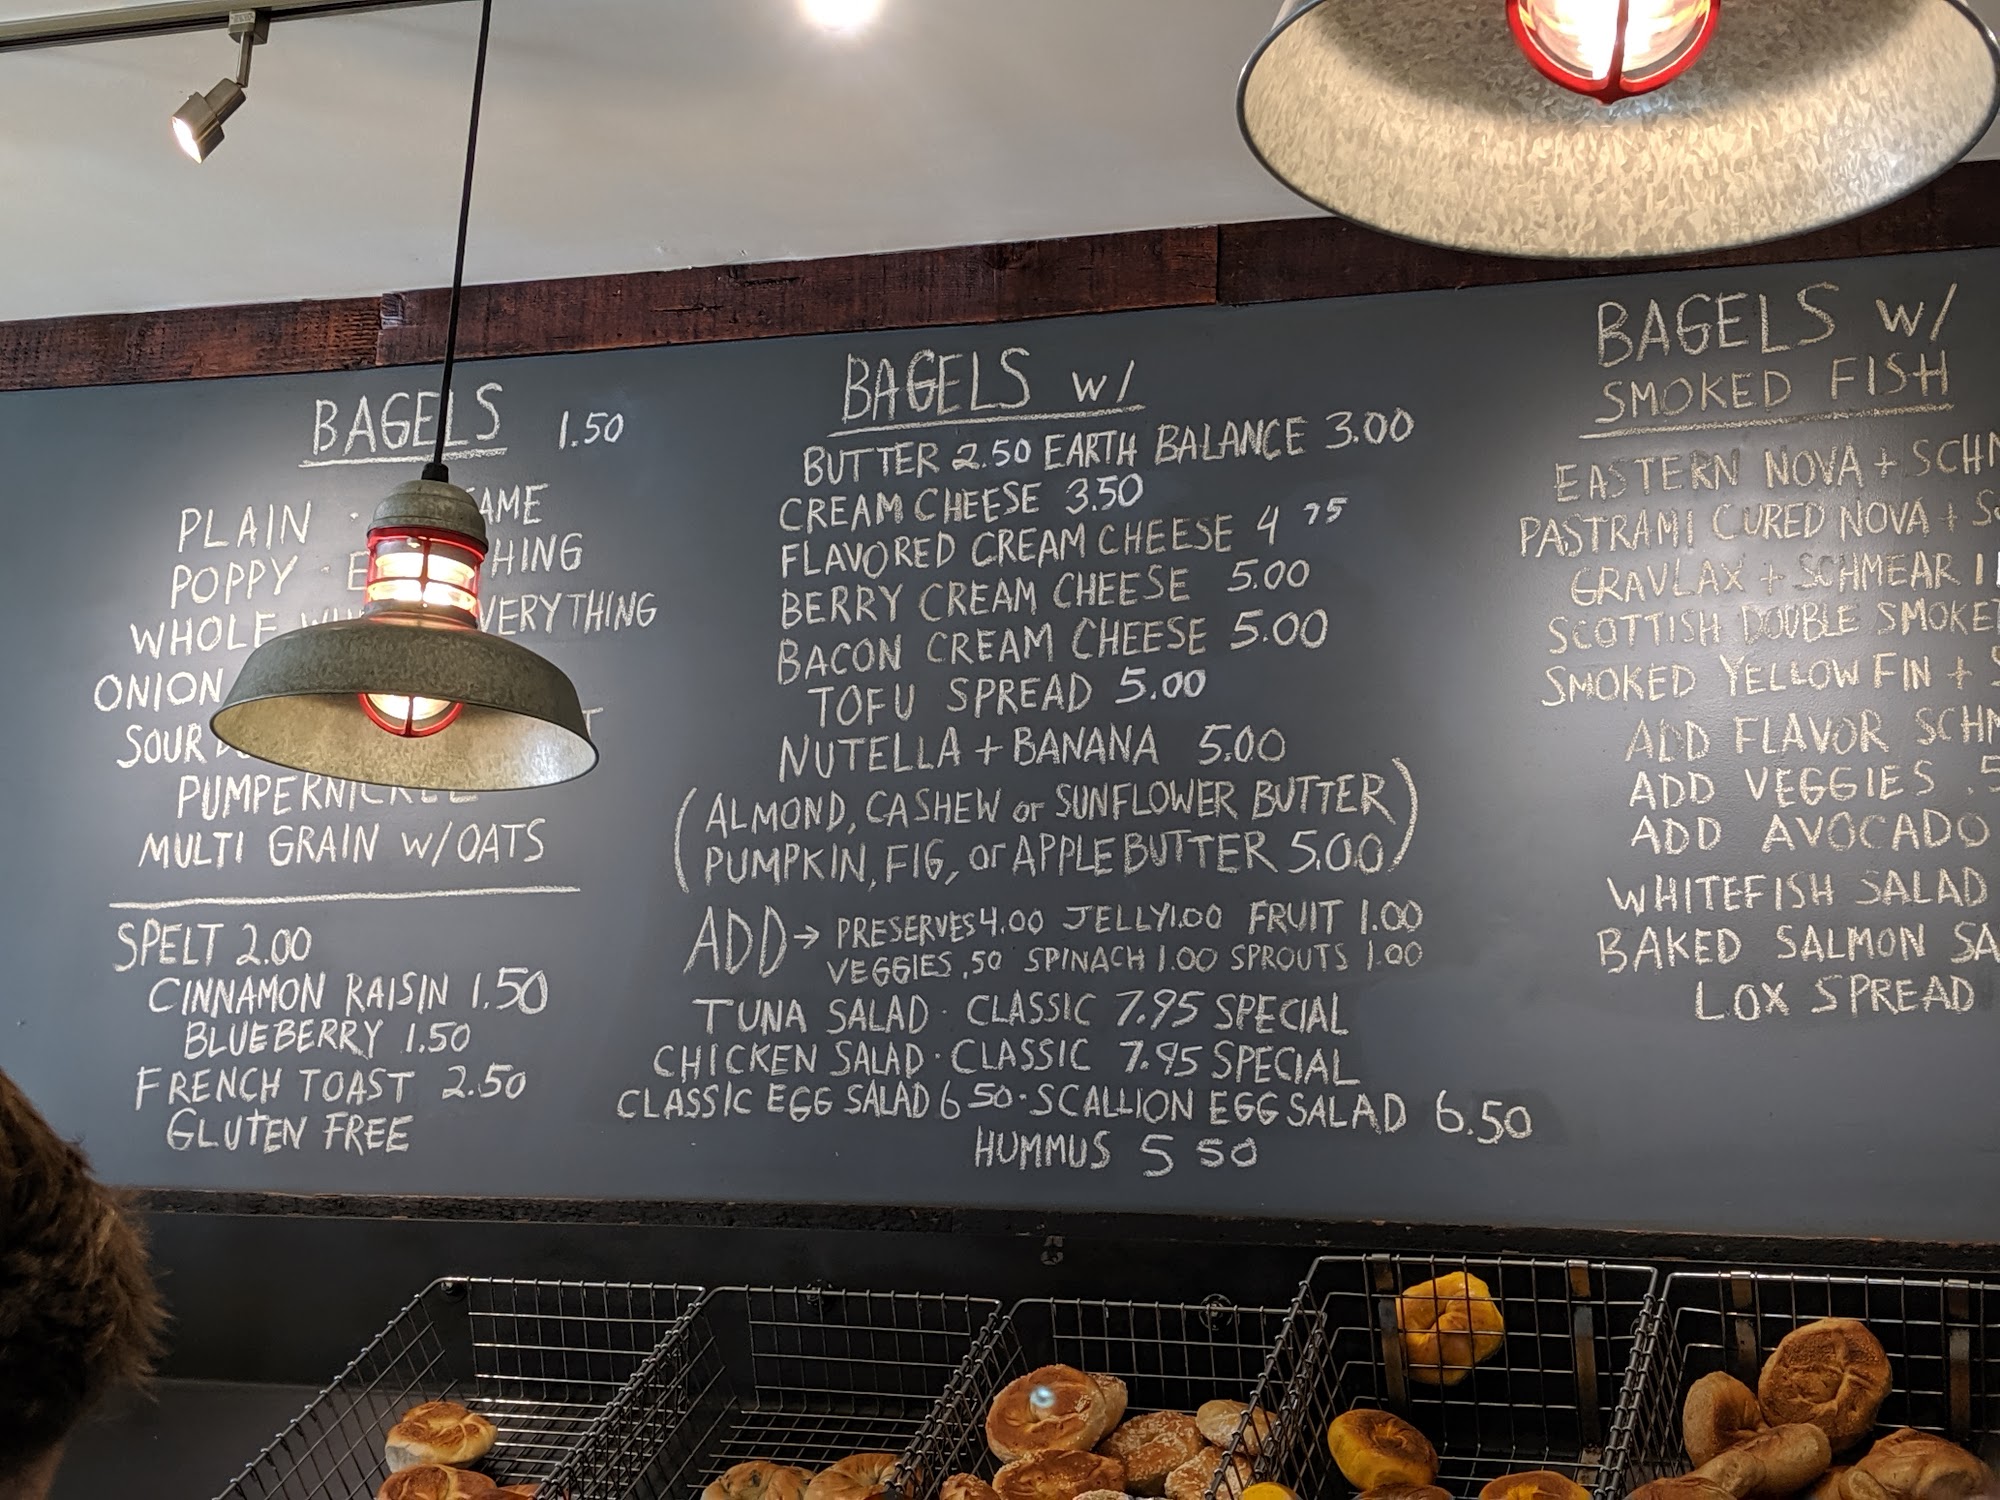 BAGELS 1.50
PLAIN ·
POPPY ·
WHOLE
ONION
SOUR
PUMPERNICKEL
MULTI GRAIN W/OATS
SPELT 2.00
CINNAMON RAISIN 1.50
BLUEBERRY 1.50
FRENCH TOAST 2.50
GLUTEN FREE
BAGELS W/
BUTTER 2.50 EARTH BALANCE 3.00
CREAM CHEESE 3.50
FLAVORED CREAM CHEESE 4 75
BERRY CREAM CHEESE 5.00
BACON CREAM CHEESE 5.00
TOFU SPREAD 5.00
NUTELLA + BANANA 5.00
(ALMOND, CASHEW or SUNFLOWER BUTTER
PUMPKIN, FIG, or APPLE BUTTER 5.00)
ADD → PRESERVES 4.00 JELLY 1.00 FRUIT 1.00
VEGGIES .50 SPINACH 1.00 SPROUTS 1.00
TUNA SALAD · CLASSIC 7.95 SPECIAL
CHICKEN SALAD · CLASSIC 7.95 SPECIAL
CLASSIC EGG SALAD 6 50 · SCALLION EGG SALAD 6.50
HUMMUS 5 50
BAGELS W/
SMOKED FISH
EASTERN NOVA +
PASTRAMI CURED NOVA +
GRAVLAX + SCHMEAR
SCOTTISH DOUBLE
SMOKED YELLOW FIN +
ADD FLAVOR
ADD VEGGIES
ADD AVOCADO
WHITEFISH SALAD
BAKED SALMON
LOX SPREAD